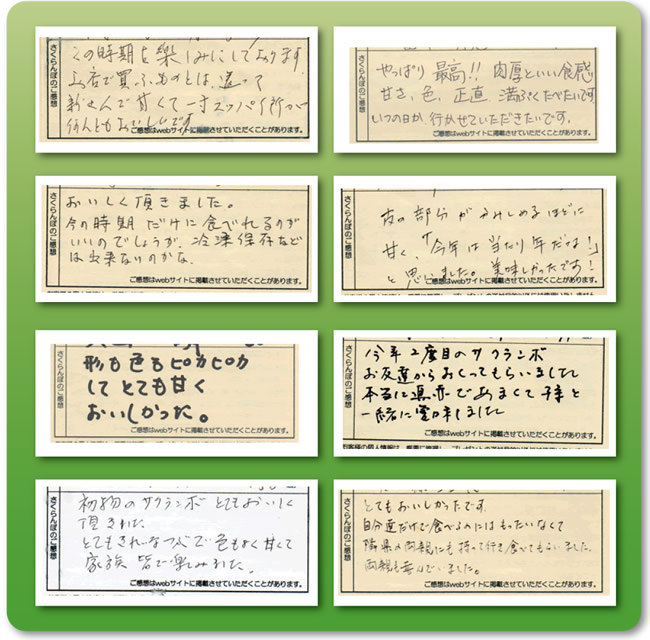 この時期を楽しみにしております
お店で買ふものとは、違って
新せんで甘くて一寸スッパイ所が
何んともおいしいです
さくらんぼのご感想
ご感想はwebサイトに掲載させていただくことがあります。
やっぱり 最高!! 肉厚といい食感
甘さ、色、正直 満ぷくたべたいです
いつの日か、行かせていただきたいです。
さくらんぼのご感想
ご感想はwebサイトに掲載させていただくことがあります。
おいしく頂きました。
今の時期だけに食べれるのが
いいのでしょうが、冷凍保存など
は出来ないのかな、
さくらんぼのご感想
ご感想はwebサイトに掲載させていただくことがあります。
皮の部分がかみしめるほどに
甘く、「今年は当たり年だな!」
と思いました。美味しかったです!
さくらんぼのご感想
ご感想はwebサイトに掲載させていただくことがあります。
形も色もピカピカ
して とても甘く
おいしかった。
さくらんぼのご感想
ご感想はwebサイトに掲載させていただくことがあります。
今年2度目のサクランボ
お友達からおくってもらいました
本当に真赤であまくて子供と
一緒に賞味しました
さくらんぼのご感想
ご感想はwebサイトに掲載させていただくことがあります。
初物のサクランボとてもおいしく
頂きました
とてもきれいなつぶで色もよく甘くて
家族皆で楽しみました。
さくらんぼのご感想
ご感想はwebサイトに掲載させていただくことがあります。
とてもおいしかったです。
自分達だけで食べるのにはもったいなくて
隣県の両親にも持って行き食べてもらいました。
両親も喜んでいました。
さくらんぼのご感想
ご感想はwebサイトに掲載させていただくことがあります。